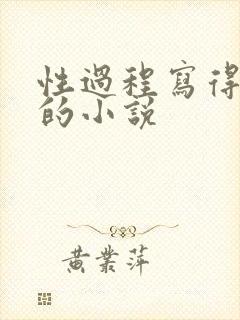 性過程寫得
的小說
黃業萍